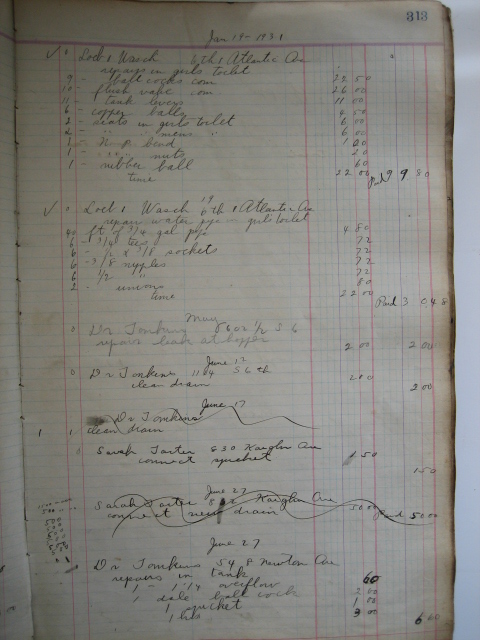 313
Jan 19 - 1931
Loct 1 Wasch 6th & Atlantic Ave
repairs in girls toilet
9 - ball cocks com 22 50
10 - flush valve com 26 00
11 - tank levers 11 00
6 - copper balls 4 50
2 - seats in girls toilet 6 00
2 - " " mens " 6 00
1 - N.P. bend 1 00
1 - " nuts 20
1 - rubber ball 60
time 22 00 Paid 99 80
19
Loct 1 Wasch 6th & Atlantic Ave
repair water pipe - girls toilet
40 ft of 3/4 gal pipe 4 80
6 - 3/4 tees 72
6 - 1/2 x 3/8 sockets 72
6 - 3/8 nipples 72
6 1/2 " 72
2 - unions 80
time 22 00
Paid 30 48
May
Dr Tomkins 602 1/2 S 6
repairs leak at hopper 2 00 2 00
June 12
Dr Tomkins 1104 S 6th
clean drain 2 00
2 00
June 17
Dr Tomkins
1 1 clean drain
Sarah Foster 830 Kaighn Ave
connect spicket 1 50
1 50
June 27
Sarah Foster 8 Kaighn Ave
connect new drain 50 00 Paid 50 00
June 27
Dr Tomkins 548 Newton Ave
repairs in tank
1 - 1 1/4 overflow 60
1 ball cock 2 00
1 spicket 1 00
hrs 3 00 6 60